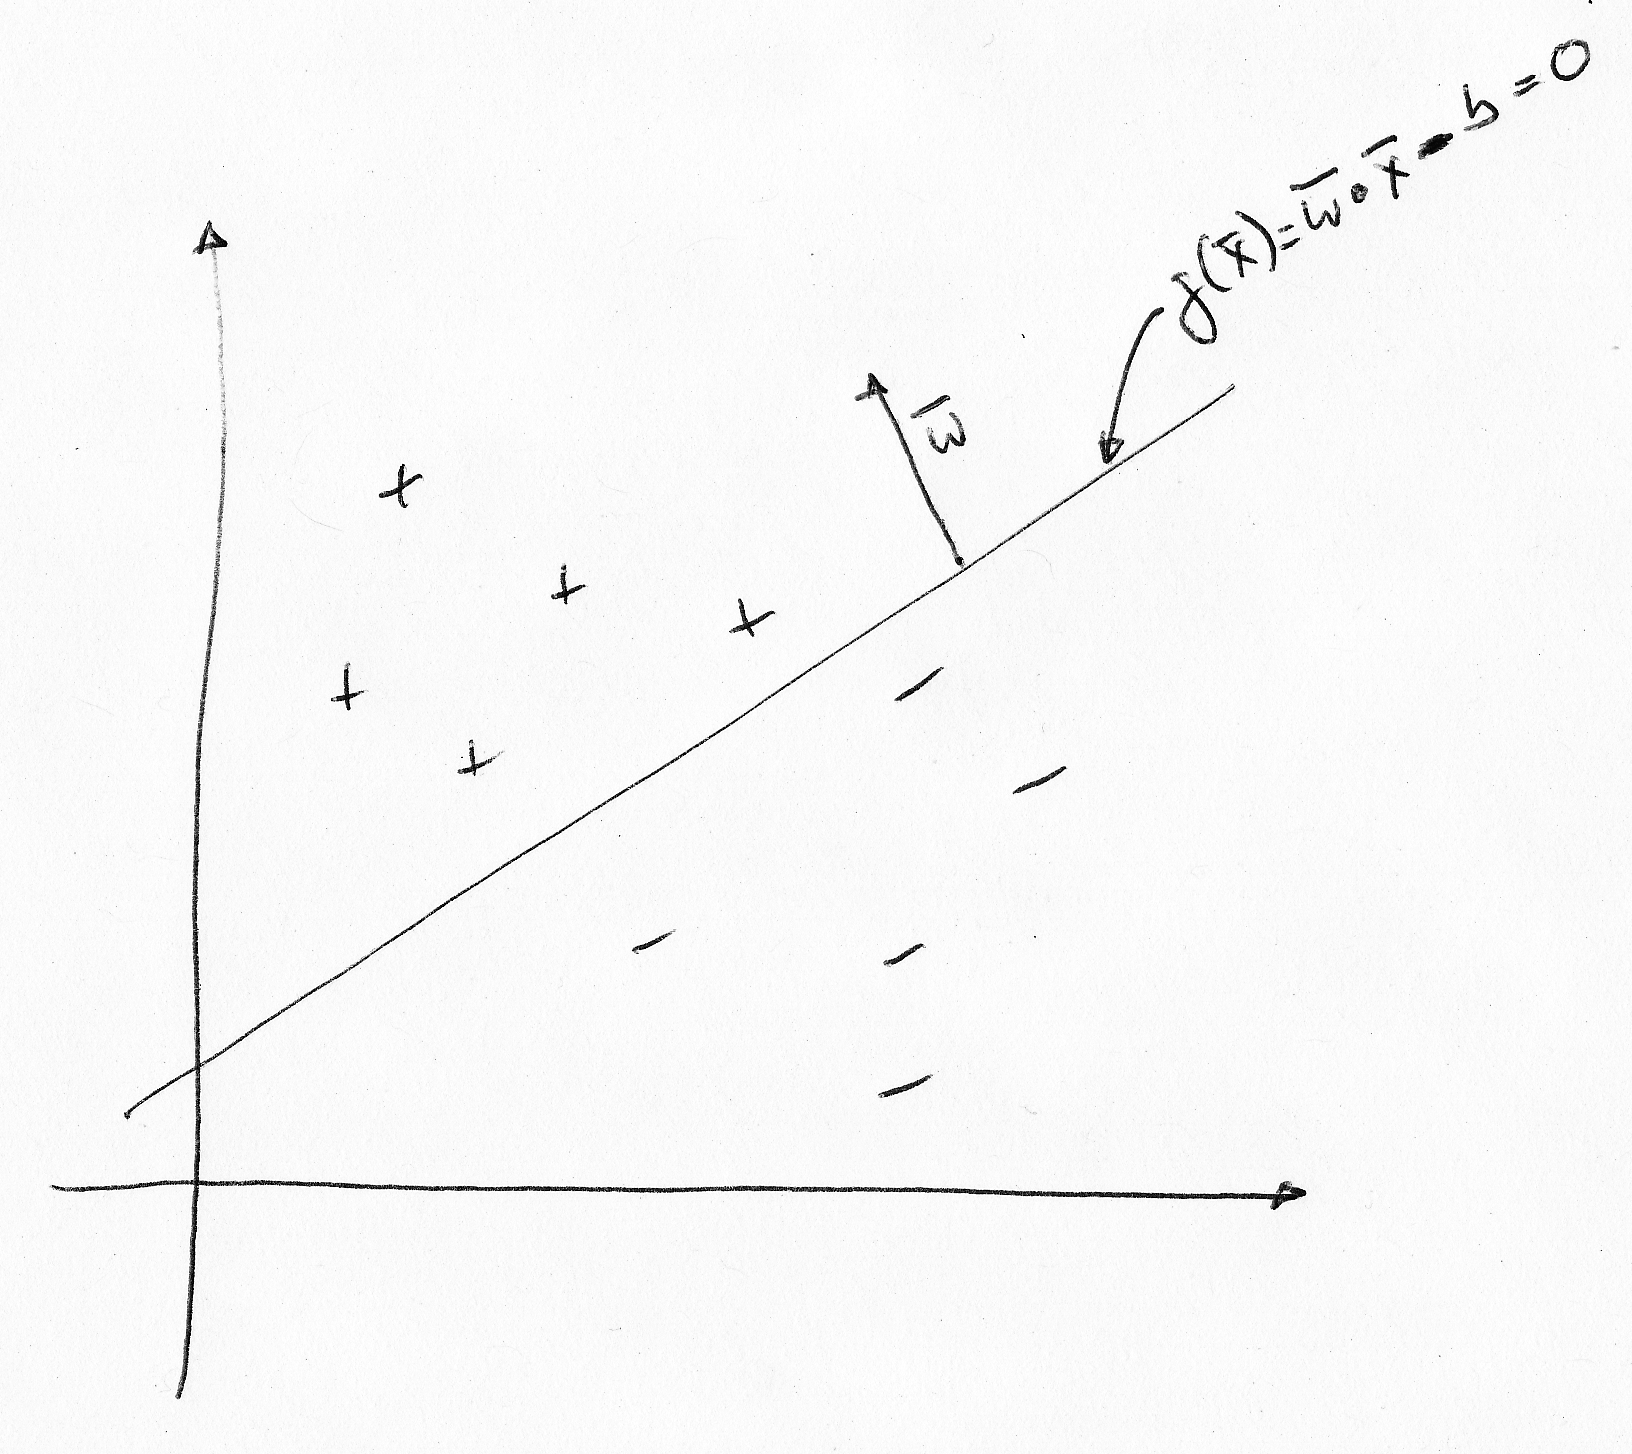 f(x̄)=w̄•x̄-b=0
w̄
+
+
+
+
+
-
-
-
-
-